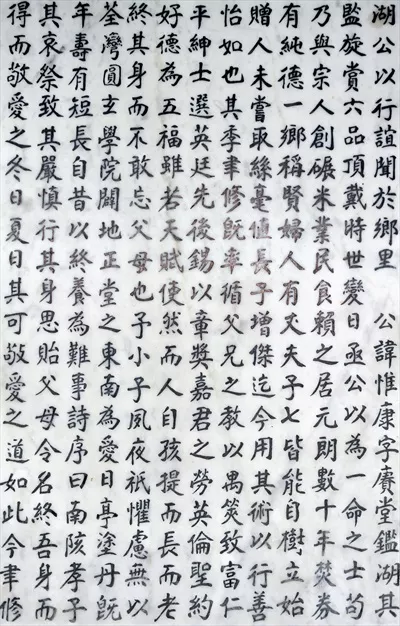 湖公以行誼聞於鄉里　公諱惟康字賡堂鑑湖其
監旋賞六品頂戴時世變日亟公以為一命之士苟
乃與宗人創碾米業民食賴之居元朗數十年焚券
有純德一鄉稱賢婦人有丈夫子七皆能自樹立始
贈人未嘗取絲毫值長子增傑迄今用其術以行善
怡如也其季聿修旣率循父兄之教以禺筴致富仁
平紳士選英廷先後錫以章獎嘉君之勞英倫聖約
好德為五福雖若天賦使然而人自孩提而長而老
終其身而不敢忘父母也予小子夙夜祇懼慮無以
荃灣圓玄學院闢地正堂之東南為愛日亭塗丹旣
年壽有短長自昔以終養為難事詩序曰南陔孝子
其哀祭致其嚴慎行其身思貽父母令名終吾身而
得而敬愛之冬日夏日其可敬愛之道如此今聿修